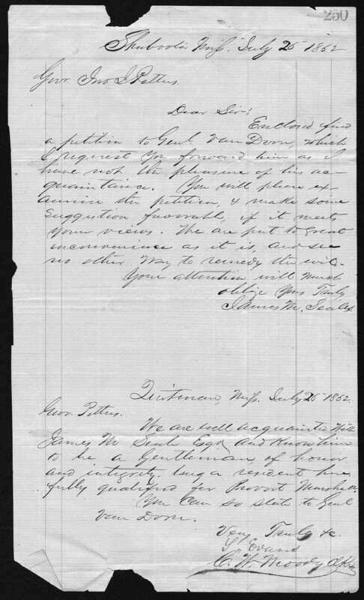 250
Shubuta Miss. July 25 1862
Gov. Jno J Pettus
Dear Sir:
Enclosed find
a petition to Genl Van Dorn, which
I request you forward him as I
have not the pleasure of his ac-
quaintance. You will please ex-
amine the petition, & make some
suggestion favorable, if it meets
your views. We are put to great
inconvenience as it is, and see
no other way to remedy the evil.
Your attention will much
oblige Yours Truly
James M.
Quitman, Miss. July 26 1862
Gov Pettus.
We are well acquainted with
James M Esqr and know him
to be a Gentleman of honor
and integrity being a resident here
fully qualified for Provost Marshall
You can so state to Genl
Van Dorn.
Very Truly &c
Evans
C. H. Moody